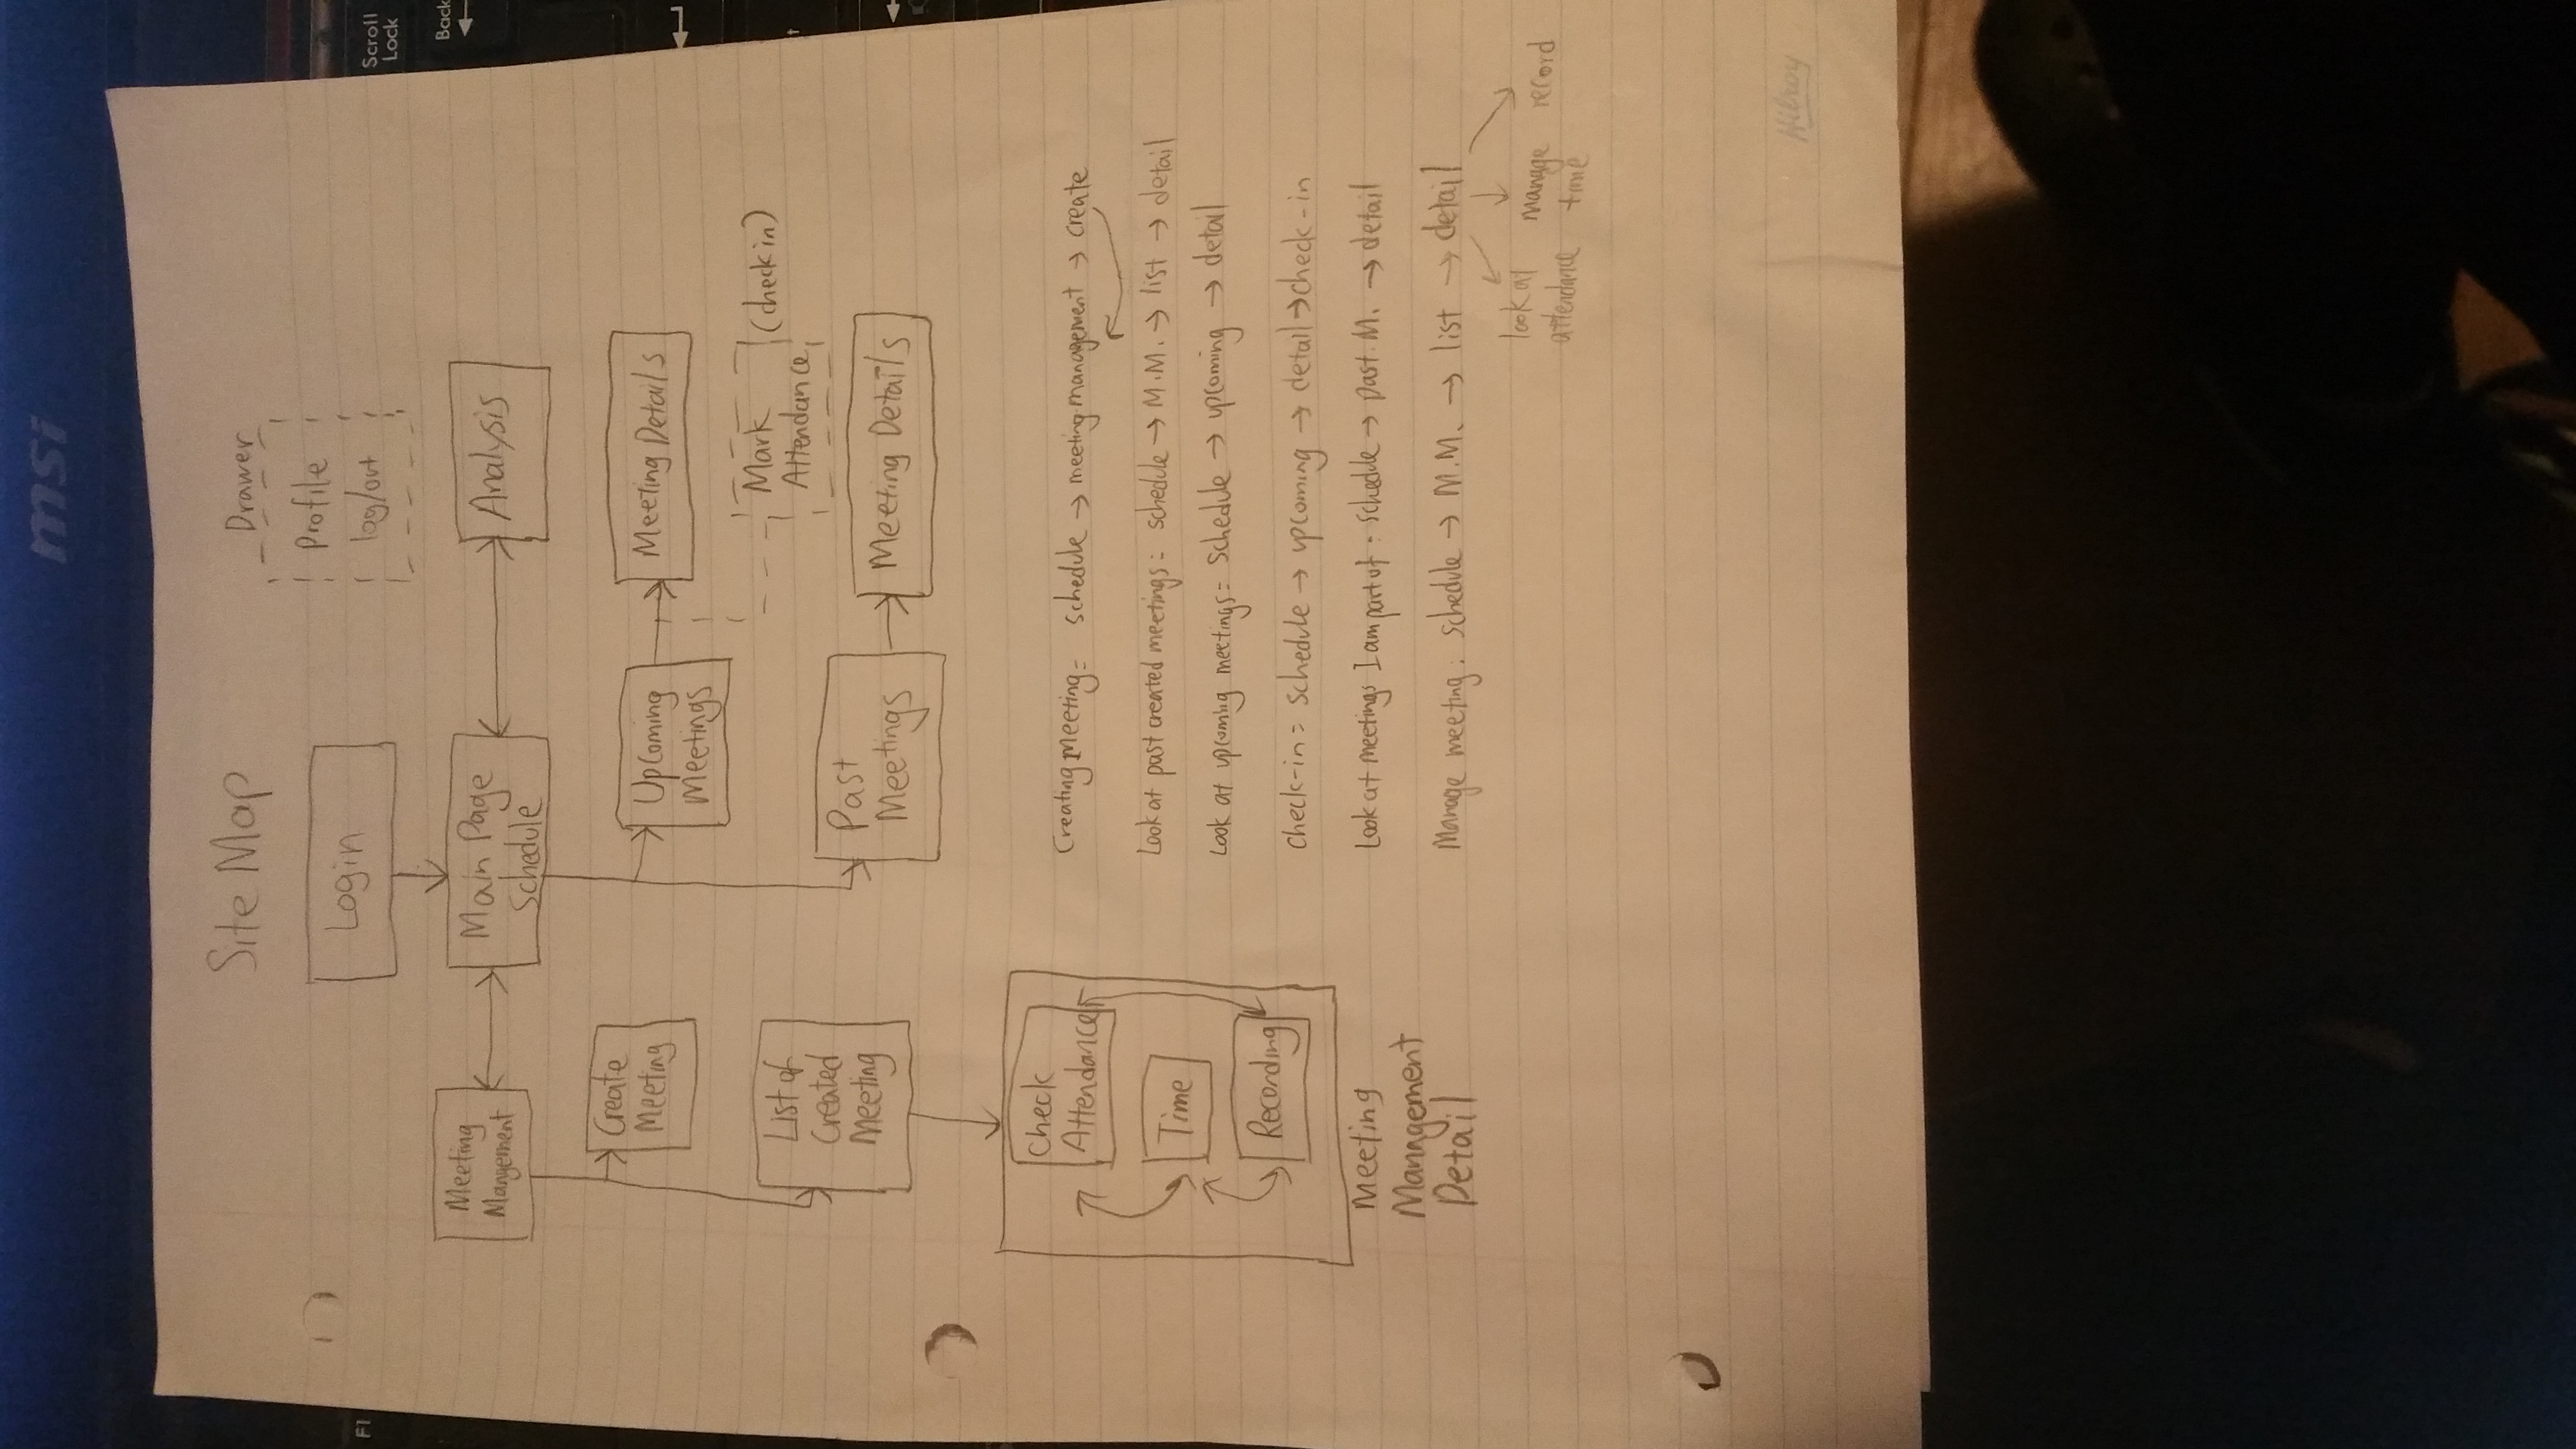 msi
Site Map
Drawer
Profile
log/out
Login
Meeting
Mangement
Main Page
Schedule
Analysis
Create
Meeting
Upcoming
Meetings
Meeting Details
Mark
Attendance
(check in)
List of
Created
Meeting
Past
Meetings
Meeting Details
Check
Attendance
Time
Recording
Meeting
Management
Detail
Creating meeting = schedule → meeting management → create
Look at past created meetings = schedule → M.M. → list → detail
Look at upcoming meetings = schedule → upcoming → detail
check-in = schedule → upcoming → detail → check-in
Look at meetings I am part of : schedule → past M. → detail
Manage meeting : schedule → M.M. → list → detail
look at
attendance
manage
time
record
Hilroy
F1
Scroll
Lock
Back